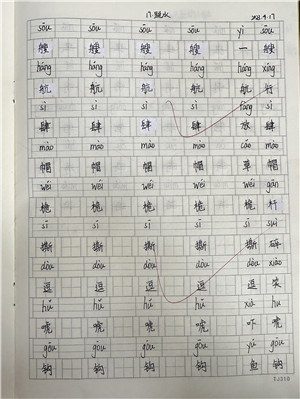 17.跳水 23.4.17
sōu sōu sōu sōu yì sōu
艘 艘 艘 艘 一 艘
háng háng háng háng háng xíng
航 航 航 航 航 行
sì sì sì sì fàng sì
肆 肆 肆 肆 放 肆
mào mào mào mào cǎo mào
帽 帽 帽 帽 草 帽
wéi wéi wéi wéi wéi gān
桅 桅 桅 桅 桅 杆
sī sī sī sī sī suì
撕 撕 撕 撕 撕 碎
dòu dòu dòu dòu dòu xiào
逗 逗 逗 逗 逗 笑
hǔ hǔ hǔ hǔ xià hu
唬 唬 唬 唬 吓 唬
gōu gōu gōu gōu yú gōu
钩 钩 钩 钩 鱼 钩